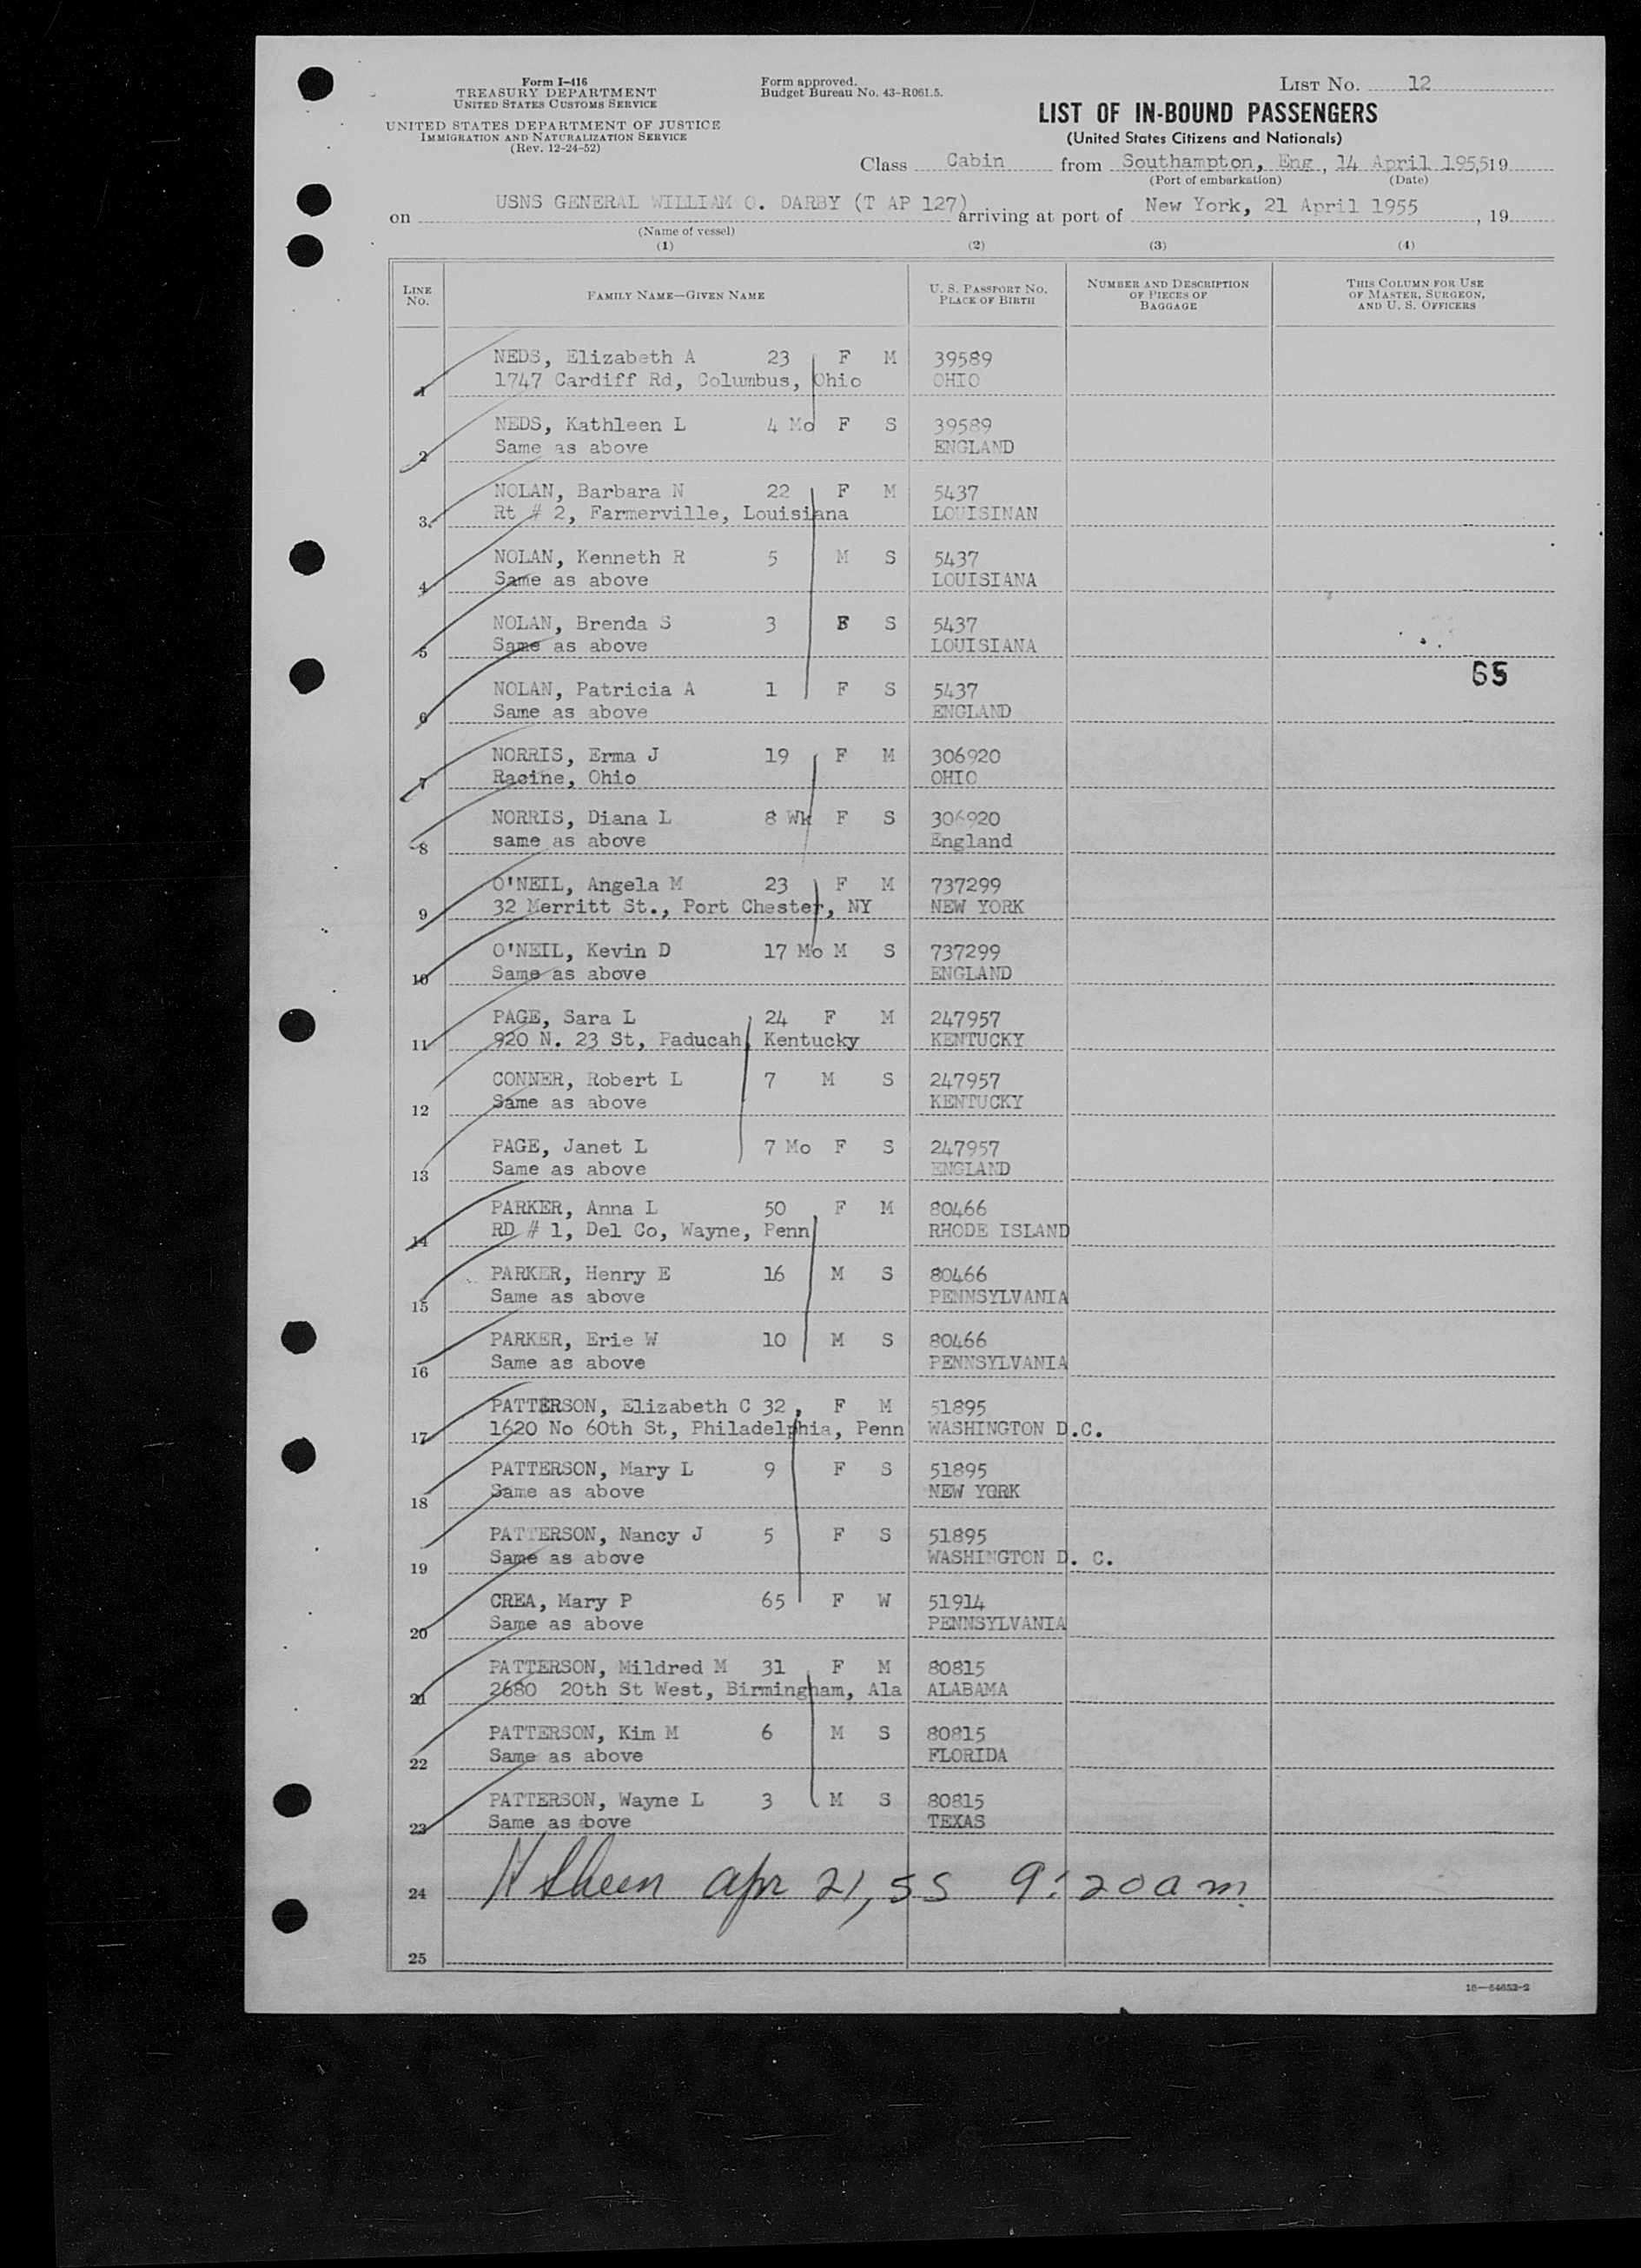 Form I-416
TREASURY DEPARTMENT
UNITED STATES CUSTOMS SERVICE
UNITED STATES DEPARTMENT OF JUSTICE
IMMIGRATION AND NATURALIZATION SERVICE
(Rev. 12-24-52)
Form approved.
Budget Bureau No. 43-R061.5.
LIST No. 12
LIST OF IN-BOUND PASSENGERS
(United States Citizens and Nationals)
Class Cabin from Southampton, Eng, 14 April 1955, 19
(Port of embarkation) (Date)
on USNS GENERAL WILLIAM O. DARBY (T AP 127) arriving at port of New York, 21 April 1955, 19
(Name of vessel)
(1) (2) (3) (4)
LINE No. FAMILY NAME—GIVEN NAME U. S. PASSPORT No. PLACE OF BIRTH NUMBER AND DESCRIPTION OF PIECES OF BAGGAGE THIS COLUMN FOR USE OF MASTER, SURGEON, AND U. S. OFFICERS
NEDS, Elizabeth A 23 F M 39589
1 1747 Cardiff Rd, Columbus, Ohio OHIO
NEDS, Kathleen L 4 Mo F S 39589
2 Same as above ENGLAND
NOLAN, Barbara N 22 F M 5437
3 Rt # 2, Farmerville, Louisiana LOUISINAN
NOLAN, Kenneth R 5 M S 5437
4 Same as above LOUISIANA
NOLAN, Brenda S 3 F S 5437
5 Same as above LOUISIANA
65
NOLAN, Patricia A 1 F S 5437
6 Same as above ENGLAND
NORRIS, Erma J 19 F M 306920
7 Racine, Ohio OHIO
NORRIS, Diana L 8 Wk F S 306920
8 same as above England
O'NEIL, Angela M 23 F M 737299
9 32 Merritt St., Port Chester, NY NEW YORK
O'NEIL, Kevin D 17 Mo M S 737299
10 Same as above ENGLAND
PAGE, Sara L 24 F M 247957
11 920 N. 23 St, Paducah, Kentucky KENTUCKY
CONNER, Robert L 7 M S 247957
12 Same as above KENTUCKY
PAGE, Janet L 7 Mo F S 247957
13 Same as above ENGLAND
PARKER, Anna L 50 F M 80466
14 RD # 1, Del Co, Wayne, Penn RHODE ISLAND
PARKER, Henry E 16 M S 80466
15 Same as above PENNSYLVANIA
PARKER, Erie W 10 M S 80466
16 Same as above PENNSYLVANIA
PATTERSON, Elizabeth C 32 F M 51895
17 1620 No 60th St, Philadelphia, Penn WASHINGTON D.C.
PATTERSON, Mary L 9 F S 51895
18 Same as above NEW YORK
PATTERSON, Nancy J 5 F S 51895
19 Same as above WASHINGTON D. C.
CREA, Mary P 65 F W 51914
20 Same as above PENNSYLVANIA
PATTERSON, Mildred M 31 F M 80815
21 2680 20th St West, Birmingham, Ala ALABAMA
PATTERSON, Kim M 6 M S 80815
22 Same as above FLORIDA
PATTERSON, Wayne L 3 M S 80815
23 Same as above TEXAS
24 apr 21, 55 9:20 am
25